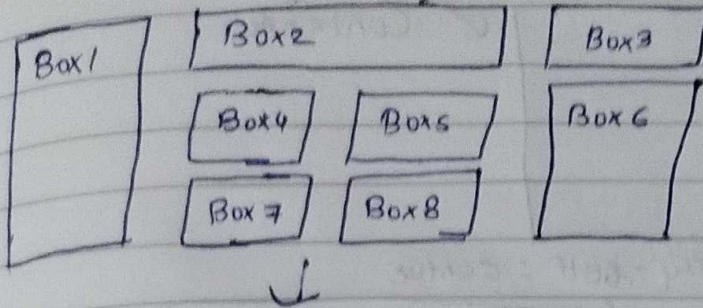 Box1
Box2
Box3
Box4
Box5
Box6
Box7
Box8